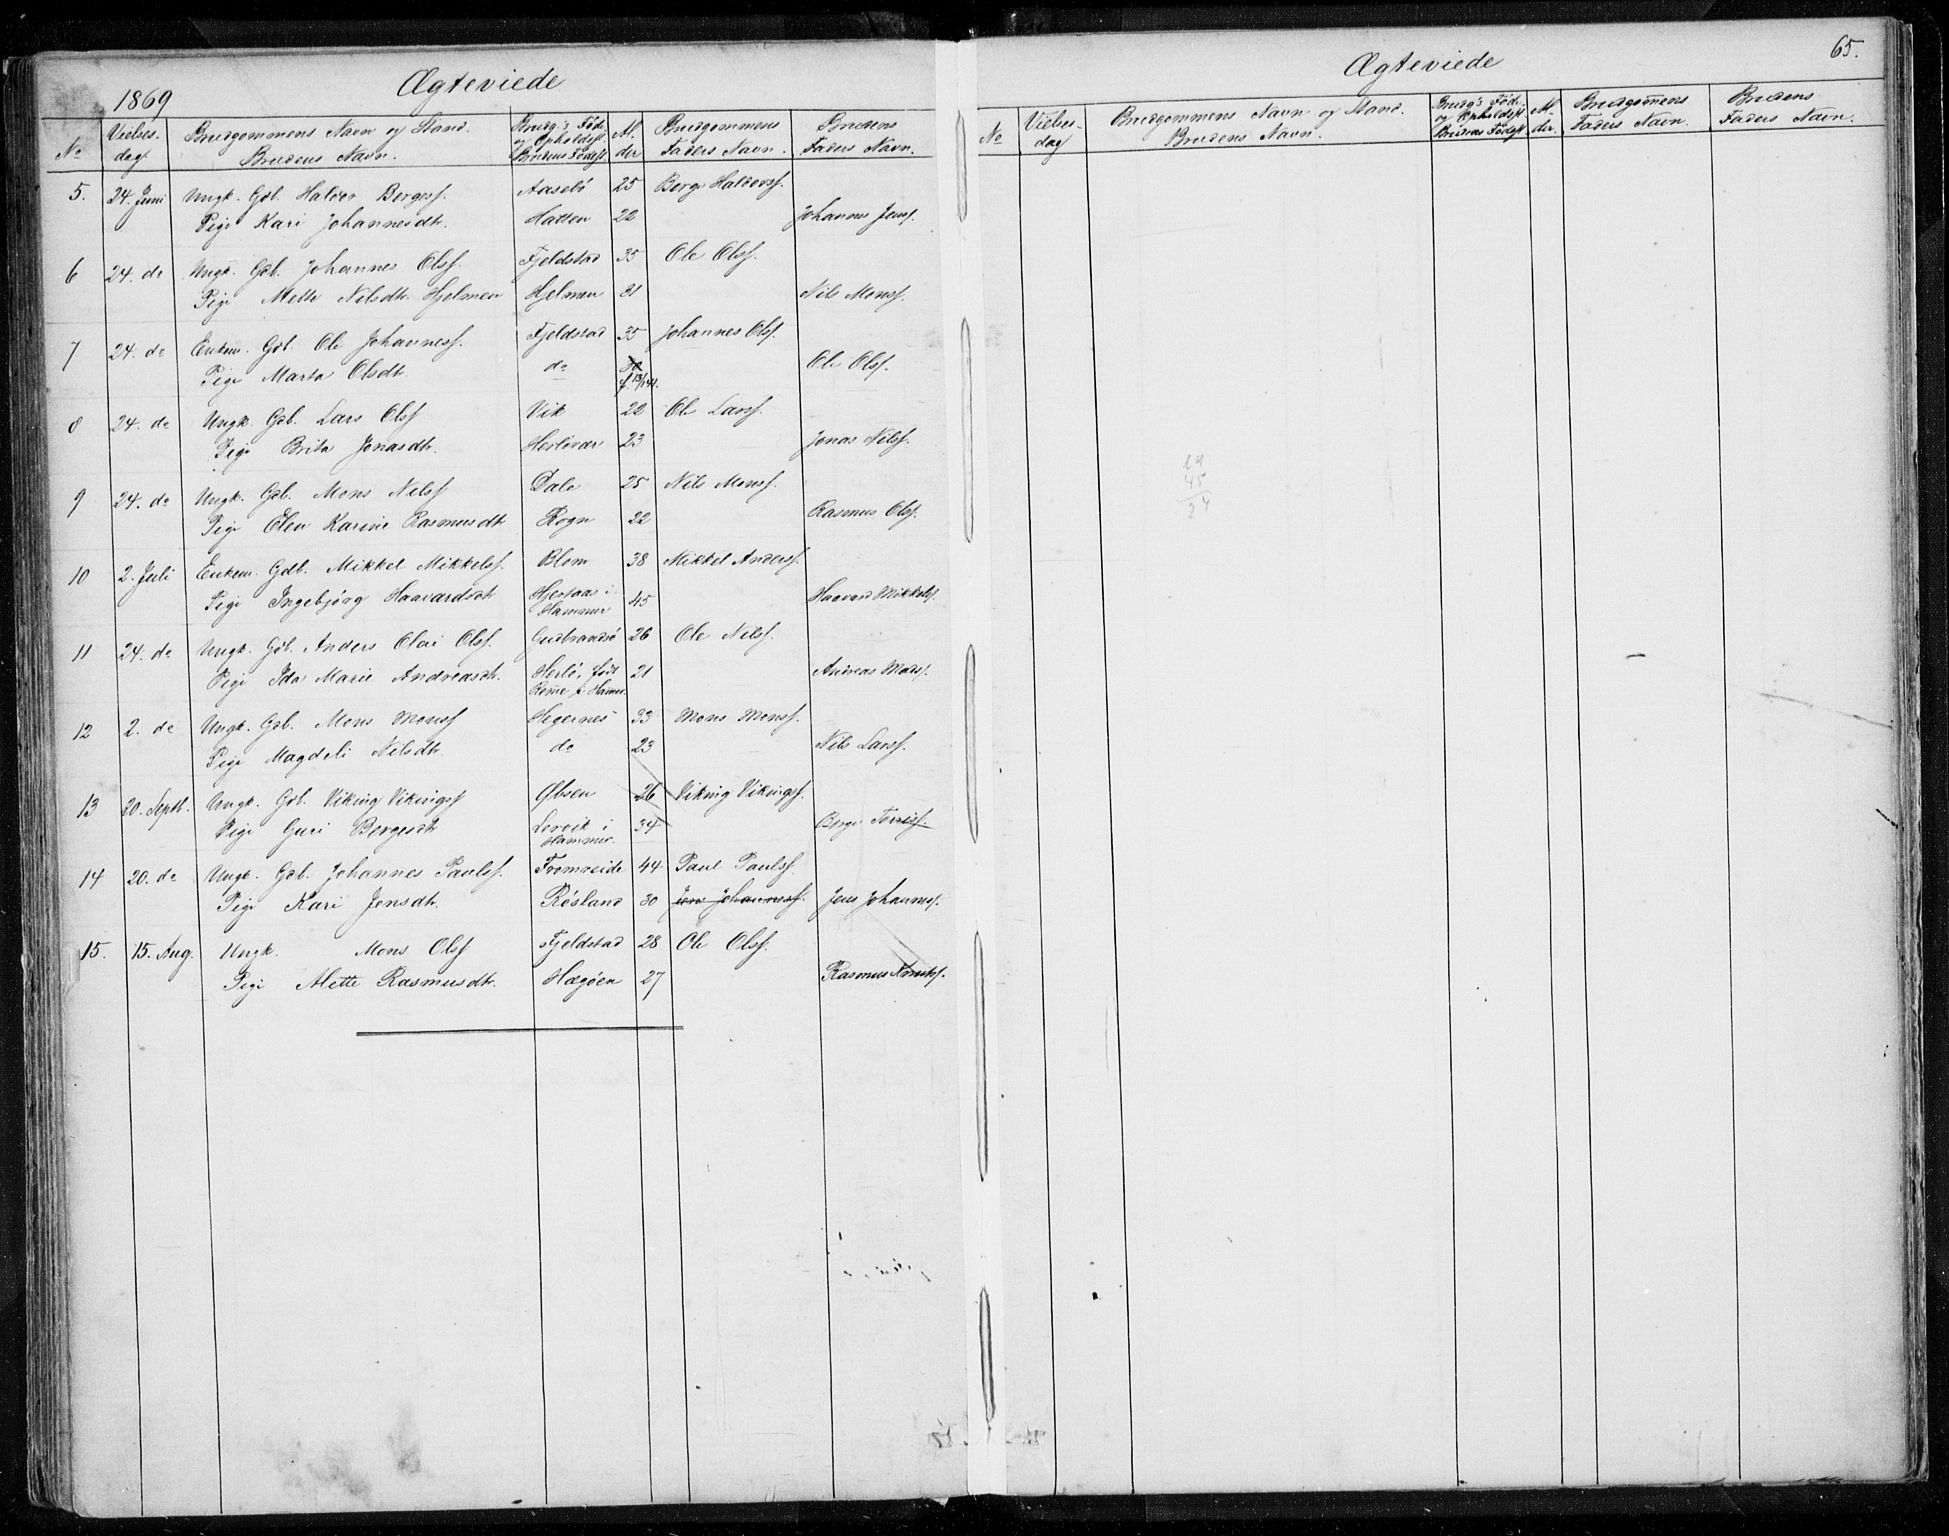 1869 Ægteviede
No Vielses- dag Brudgommens Navn og Stand. Brudens Navn. Brudg.s Føde- og Opholdsst. Brudens Fødest. Al- der Brudgommens Faders Navn. Brudens Faders Navn.
5. 24. Juni Ungk. Gdb. Haldor Bergesf. Aasebö 25 Berge Haldorsf.
Pige Kari Johannesdtr. Hatten 22 Johannes Jensf.
6 24. do Ungk. Gdb. Johannes Olsf. Fjeldstad 35 Ole Olsf.
Pige Mette Nilsdtr. Hjelmen Hjelmen 31 Nils Monsf.
7 24. do Enkem. Gdb. Ole Johannesf. Fjeldstad 35 Johannes Olsf.
Pige Marta Olsdtr. do Ole Olsf.
8 24. do Ungk. Gdb. Lars Olsf Vik 22 Ole Larsf.
Pige Brita Jonasdtr. Herlövær 23 Jonas Nilsf.
9 24. do Ungk. Gdb. Mons Nilsf Dale 25 Nils Monsf.
Pige Elen Karine Rasmusdtr Rogn 22 Rasmus Olsf.
10 2. Juli Enkem. Gdb. Mikkel Mikkelsf. Blom 38 Mikkel Andersf.
Pige Ingebjörg Haavardsdtr Hjertaas i Hammer 45 Haavard Mikkelsf.
11 24. do Ungk. Gdb. Anders Olai Olsf. Gudbrandsö 26 Ole Nilsf.
Pige Ida Marie Andreasdtr. Herlö, født 21 Andreas Mads.
12 2. do Ungk. Gdb. Mons Monsf Hegernes 33 Mons Monsf.
Pige Magdeli Nilsdtr. do 23 Nils Larsf.
13 20. Septb. Ungk. Gdb. Viking Vikingsf Øbsen 26 Viking Vikingsf.
Pige Guri Bergesdtr Lervik i Hammer 34 Berge Torrisf.
14 20. do Ungk. Gdb. Johannes Paulsf. Fromreide 44 Paul Paulsf.
Pige Kari Jensdtr. Rösland 30 Jens Johannesf. Jens Johannesf.
15. 15. Aug. Ungk. Mons Olsf Fjeldstad 28 Ole Olsf.
Pige Mette Rasmusdtr. Hægöen 27 Rasmus Knutsf.
Ægteviede 65.
No Vielses- dag Brudgommens Navn og Stand. Brudens Navn. Brudg.s Føde- og Opholdsst. Brudens Fødest Al- der. Brudgomens Faders Navn. Brudens Faders Navn.
69
45
24